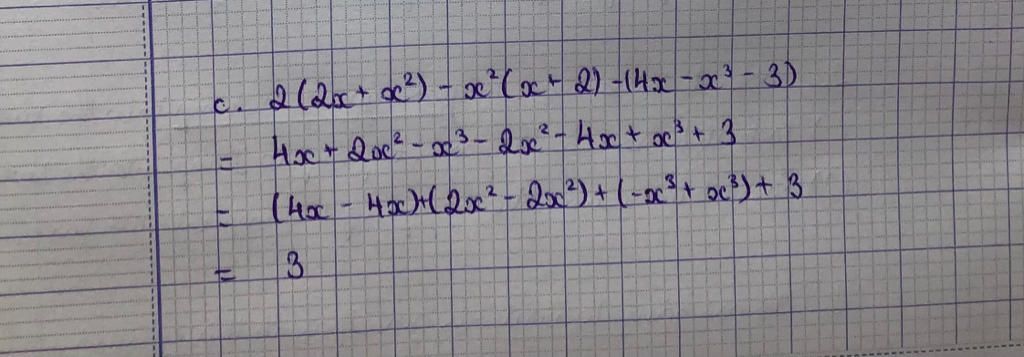 c. 2(2x + x²) - x²(x + 2) - (4x - x³ - 3)
= 4x + 2x² - x³ - 2x² - 4x + x³ + 3
= (4x - 4x) + (2x² - 2x²) + (-x³ + x³) + 3
= 3